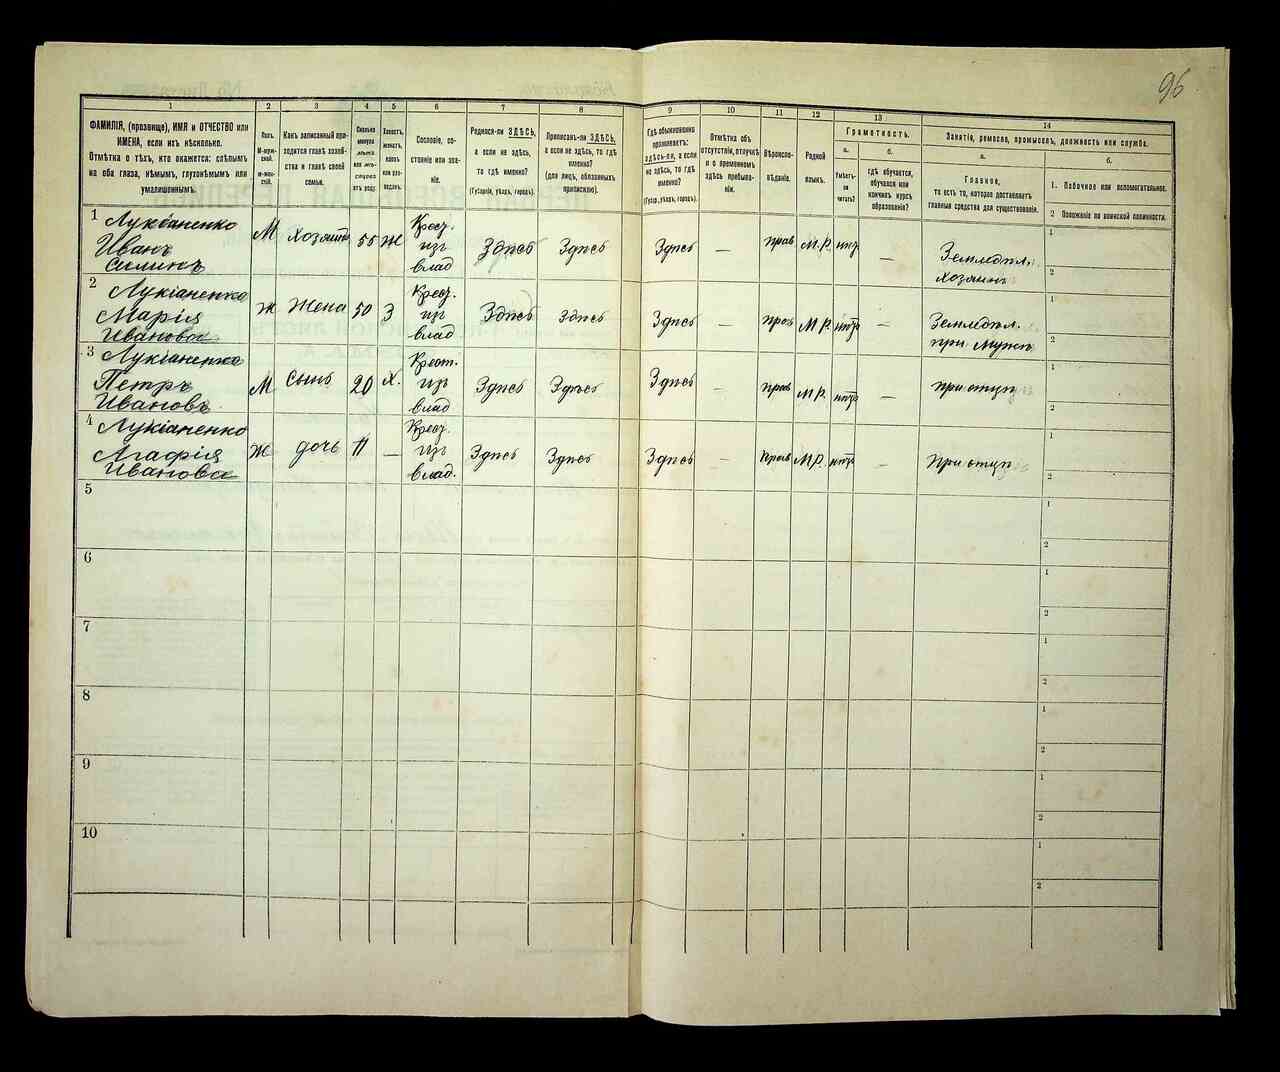 96
1
ФАМИЛІЯ, (прозвище), ИМЯ и ОТЧЕСТВО или
ИМЕНА, если ихъ нѣсколько.
Отмѣтка о тѣхъ, кто окажется: слѣпымъ
на оба глаза, нѣмымъ, глухонѣмымъ или
умалишеннымъ.
2
Полъ.
М-муж-
ской.
ж-жен-
скій.
3
Какъ записанный при-
ходится главѣ хозяй-
ства и главѣ своей
семьи.
4
Сколько
минуло
лѣтъ
или мѣ-
сяцевъ
отъ роду.
5
Холостъ,
женатъ,
вдовъ
или раз-
веденъ.
6
Сословіе, со-
стояніе или зва-
ніе.
7
Родился-ли ЗДѢСЬ,
а если не здѣсь,
то гдѣ именно?
(Губернія, уѣздъ, городъ).
8
Приписанъ-ли ЗДѢСЬ,
а если не здѣсь, то гдѣ
именно?
(для лицъ, обязанныхъ
припиской).
9
Гдѣ обыкновенно
проживаетъ:
здѣсь-ли, а если
не здѣсь, то гдѣ
именно?
(Губер., уѣздъ, городъ).
10
Отмѣтка объ
отсутствіи, отлучкѣ
и о временномъ
здѣсь пребыва-
ніи.
11
Вѣроиспо-
вѣданіе.
12
Родной
языкъ.
13
Грамотность.
а.
Умѣетъ-
ли
читать?
б.
гдѣ обучается,
обучался или
кончилъ курсъ
образованія?
14
Занятіе, ремесло, промыселъ, должность или служба.
а.
Главное,
то есть то, которое доставляетъ
главныя средства для существованія.
б.
1. Побочное или вспомогательное.
2 Положеніе по воинской повинности.
1
Лукіаненко
Иванъ
Силинъ
М
хозяинъ
55
Ж
Крест.
изъ
влад
Здѣсь
Здѣсь
Здѣсь
—
прав
М.Р.
нтъ
—
Земледѣл.
хозяинъ
1
2
2
Лукіаненко
Марія
Иванова
Ж
Жена
50
З
Крест.
изъ
влад
Здѣсь
Здѣсь
Здѣсь
—
прав
М.Р.
нтъ
—
Земледѣл.
при мужѣ
1
2
3
Лукіаненко
Петръ
Ивановъ
М
Сынъ
20
Х.
Крест.
изъ
влад
Здѣсь
Здѣсь
Здѣсь
—
прав
М.Р.
нтъ
—
при отцѣ
1
2
4
Лукіаненко
Агафія
Иванова
Ж
дочь
11
—
Крест.
изъ
влад.
Здѣсь
Здѣсь
Здѣсь
—
Прав
М.Р.
нтъ
—
При отцѣ
1
2
5
1
2
6
1
2
7
1
2
8
1
2
9
1
2
10
1
2